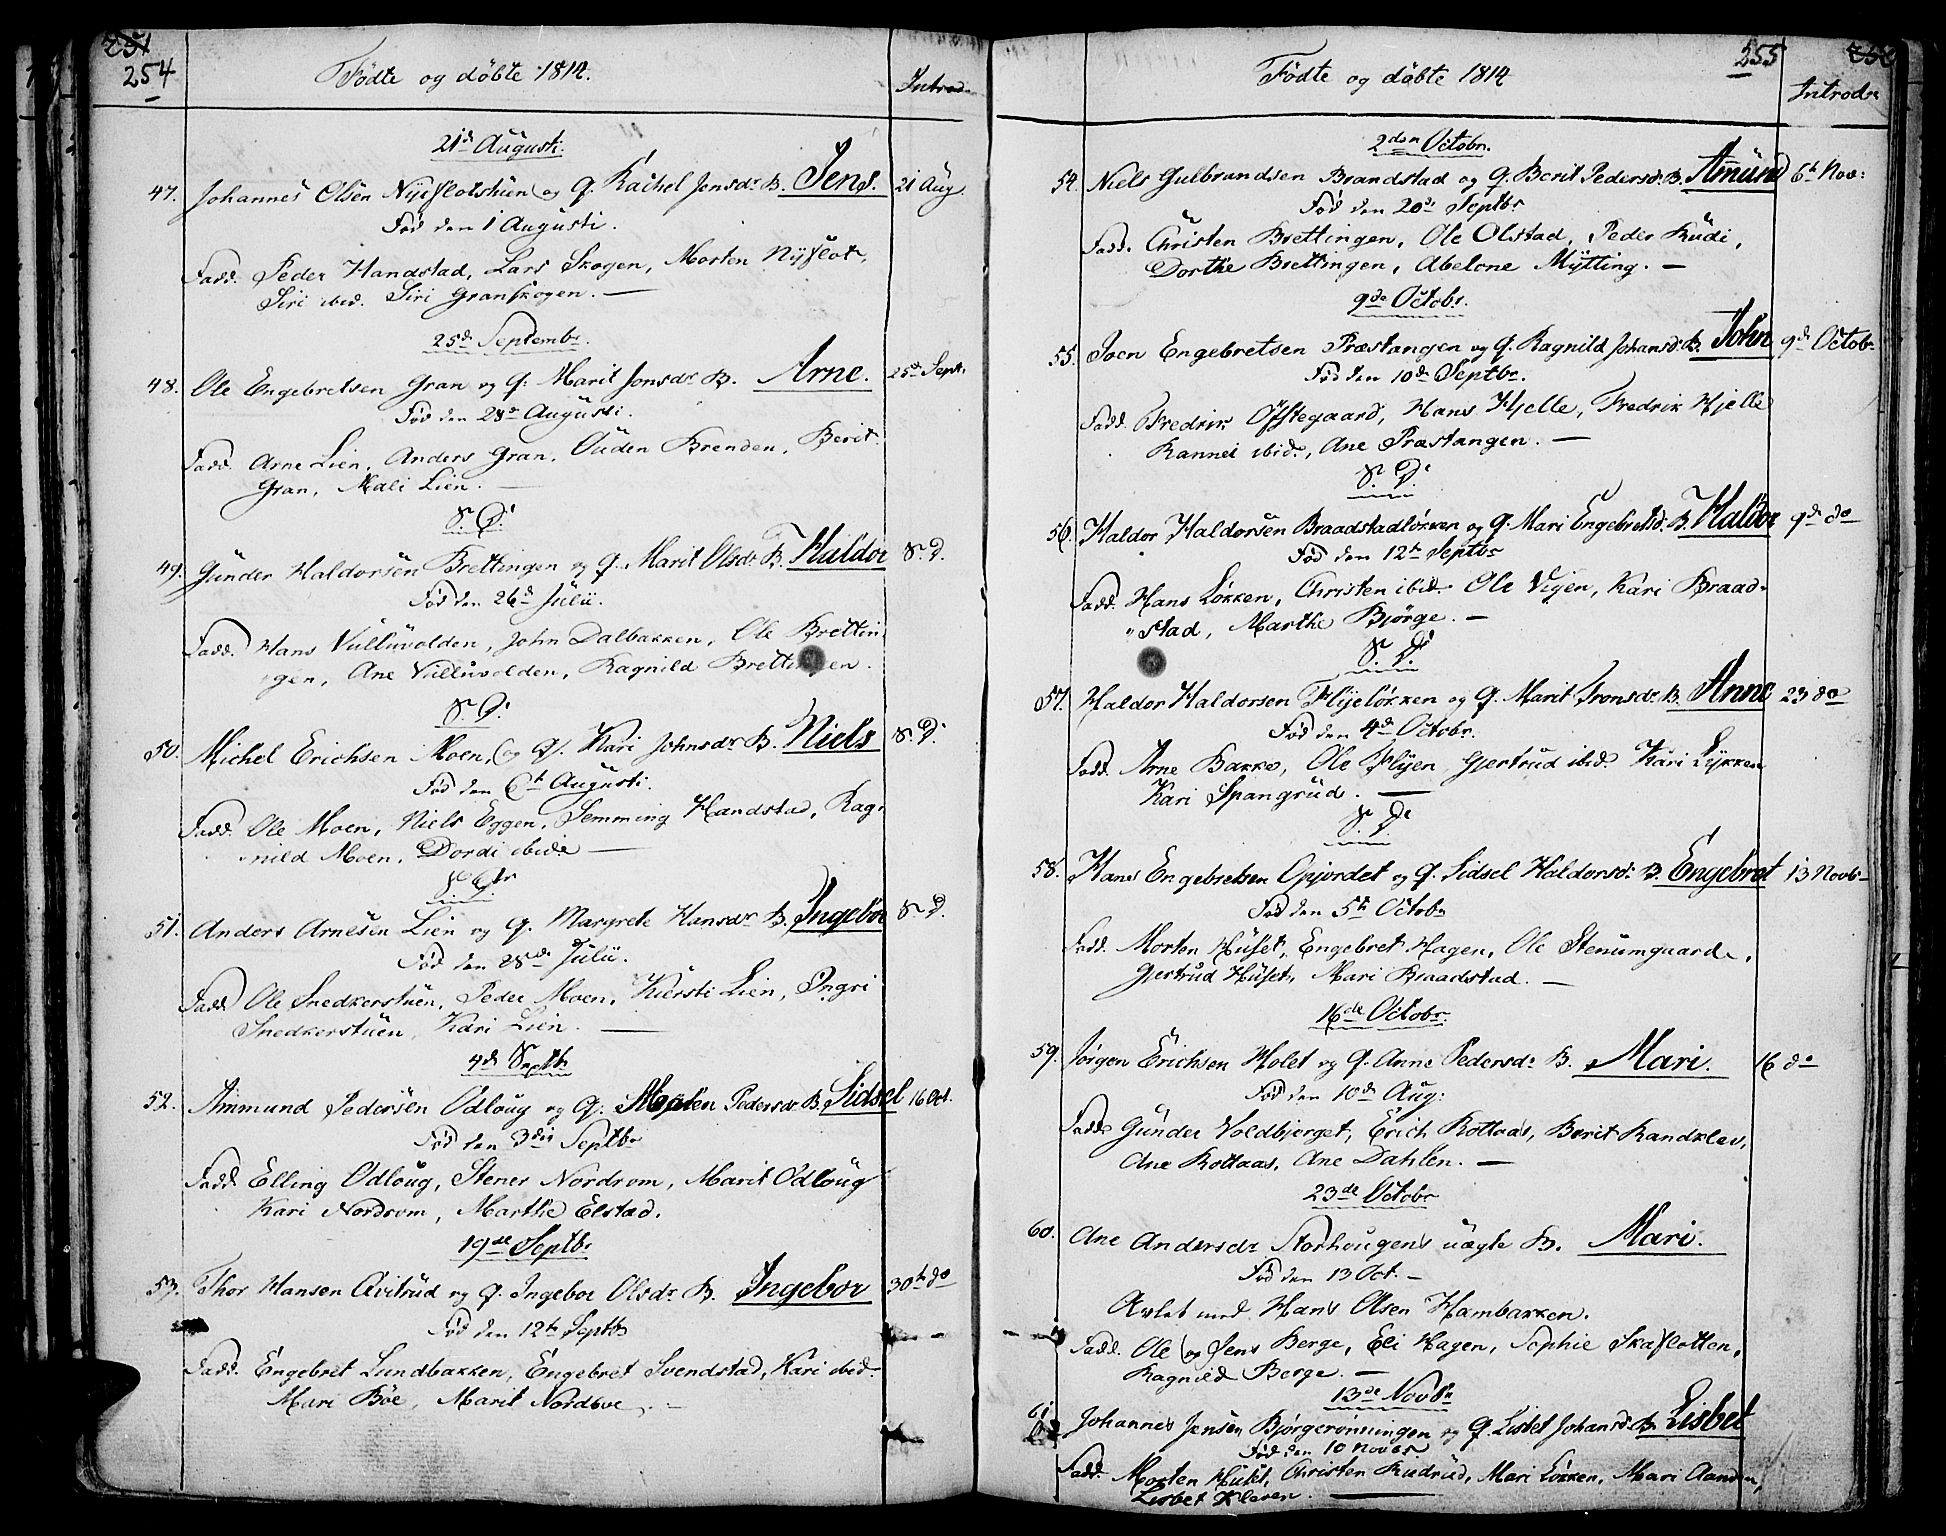 254
Fødte og døbte 1814.
Introd.
21de Augusti.
47. Johannes Olsen Nyeflotshuen og Q. Rachel Jensdr B. Jens. 21 Aug.
Fød den 1 Augusti.
Fadd. Peder Handstad, Lars Skogen, Morten Nyflot,
Siri ibid. Siri Granskogen. —
25de Septembr.
48. Ole Engebretsen Gran og Q. Marit Jonsdr B. Arne. 25de Sept.
Fød den 28de Augusti.
Fadd. Arne Lien, Anders Gran, Ouden Brenden, Berit
Gran, Mali Lien. —
S. D.
49. Gunder Haldorsen Brettingen og Q. Marit Olsdr B. Haldor S. D.
Fød den 26de Julii.
Fadd. Hans Vulluvolden, John Dalbakken, Ole Brettin-
gen, Ane Vulluvolden, Ragnild Brettingen.
S. D.
50. Michel Erichsen Moen, og Q. Kari Johnsdr B. Niels S. D.
Fød den 6te Augusti.
Fadd. Ole Moen, Niels Eggen, Semming Handstad, Rag-
nild Moen, Dordi ibid. —
S. D.
51. Anders Arnesen Lien og Q. Margrete Hansdr B. Ingebor S. D.
Fød den 28de Julii.
Fadd. Ole Snedkerstuen, Peder Moen, Kiersti Lien, Ingri
Snedkerstuen, Kari Lien. —
4de Septbr
52. Ammund Pedersen Odloug og Q. Malen Pedersdr B. Sidsel 16 Oct.
Fød den 3die Septbr
Fadd. Elling Odloug, Stener Nordrom, Marit Odloug
Kari Nordrom, Marthe Elstad.
19de Septbr
53. Thor Hansen Qvitrud og Q. Ingebor Olsdr B. Ingebor 30te do
Fød den 12te Septbr
Fadd. Engebret Lundbakken, Engebret Svendstad, Kari ibid.
Mari Böe, Marit Nordboe. —
Fødte og døbte 1814
255
Introd.
2den Octobr.
54. Niels Gulbrandsen Brandstad og Q. Berit Pedersd. B. Amund 6te Nov:
Fød den 20de Septbr
Fadd. Christen Brettingen, Ole Olstad, Peder Rudi,
Dorthe Brettingen, Abelone Mytting. —
9de Octobr.
55. Joen Engebretsen Præstangen og Q. Ragnild Johansd. B. John 9de Octob.
Fød den 10de Septbr.
Fadd. Fredrik Offtegaard, Hans Hjelle, Fredrik Hjelle
Rannei ibid., Ane Præstangen. —
S. D.
56. Haldor Haldorsen Braadstadløkken og Q. Mari Engebretsd. B. Haldor 9de do
Fød den 12te Septbr
Fadd. Hans Løkken, Christen ibid. Ole Vigen, Kari Braad-
stad, Marthe Bjørge. —
S. D.
57. Haldor Haldorsen Flyeløkken og Q. Marit Tronsdr B. Anne 23 do
Fød den 4de Octobr.
Fadd. Arne Bakke, Ole Flyen, Gjertrud ibid. Kari Lykken
Kari Spangrud. —
S. D.
58. Hans Engebretsen Opjordet og Q. Sidsel Haldorsd. B. Engebret 13 Novb.
Fød den 5te Octobr
Fadd. Morten Huset, Engebret Hagen, Ole Stenumgaard,
Gjertrud Huset, Mari Braadstad. —
16de Octobr.
59. Jørgen Erichsen Holet og Q. Anne Pedersdr B. Mari. 16 do
Fød den 10de Aug:
Fadd. Gunder Voldbjerget, Erich Rottaas, Berit Randklev,
Ane Rottaas, Ane Dahlen. —
23de Octobr
60. Ane Andersdr Storhougens uægte B. Mari.
Fød den 13 Oct. —
Avlet med Hans Olsen Hambakken.
Fadd. Ole og Jens Berge, Eli Hagen, Sophie Skaflotten,
Ragnild Berge. —
13de Novbr
61. Johannes Jensen Bjørgerønningen og Q. Lisbet Johansd. B. Lisbet
Fød den 10 Novbr
Fadd. Morten Huset, Christen Rudrud, Mari Løkken, Mari Aanden,
Lisbet Kleven. —